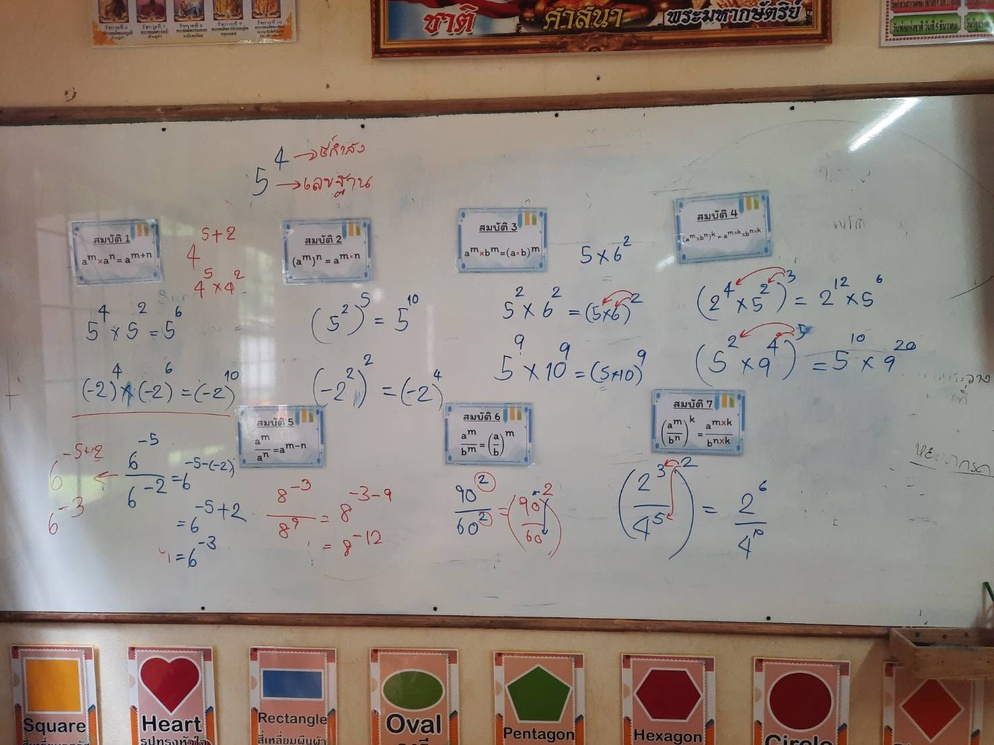 ชาติ ศาสนา พระมหากษัตริย์
5⁴
→ชี้กำลัง
→เลขฐาน
สมบัติ 1
aᵐ×aⁿ=aᵐ⁺ⁿ
4⁵⁺²
4⁵×4²
5⁴×5²=5⁶
(-2)⁴×(-2)⁶=(-2)¹⁰
สมบัติ 2
(aᵐ)ⁿ=aᵐˣⁿ
(5²)⁵=5¹⁰
(-2²)²=(-2)⁴
สมบัติ 3
aᵐ×bᵐ=(a×b)ᵐ
5×6²
5²×6²=(5×6)²
5⁹×10⁹=(5×10)⁹
สมบัติ 4
(aᵐ×bⁿ)ᵏ=aᵐˣᵏ×bⁿˣᵏ
(2⁴×5²)³=2¹²×5⁶
(5²×9⁴)⁵=5¹⁰×9²⁰
สมบัติ 5
aᵐ/aⁿ=aᵐ⁻ⁿ
6⁻⁵⁺² ← 6⁻⁵/6⁻²=6⁻⁵⁻⁽⁻²⁾
6⁻³
=6⁻⁵⁺²
=6⁻³
8⁻³/8⁹=8⁻³⁻⁹
=8⁻¹²
สมบัติ 6
aᵐ/bᵐ=(a/b)ᵐ
90²/60²=(90/60)²
สมบัติ 7
(aᵐ/bⁿ)ᵏ=aᵐˣᵏ/bⁿˣᵏ
(2³/4⁵)²=2⁶/4¹⁰
Square
Heart
รูปทรงหัวใจ
Rectangle
สี่เหลี่ยมผืนผ้า
Oval
Pentagon
Hexagon
Circle